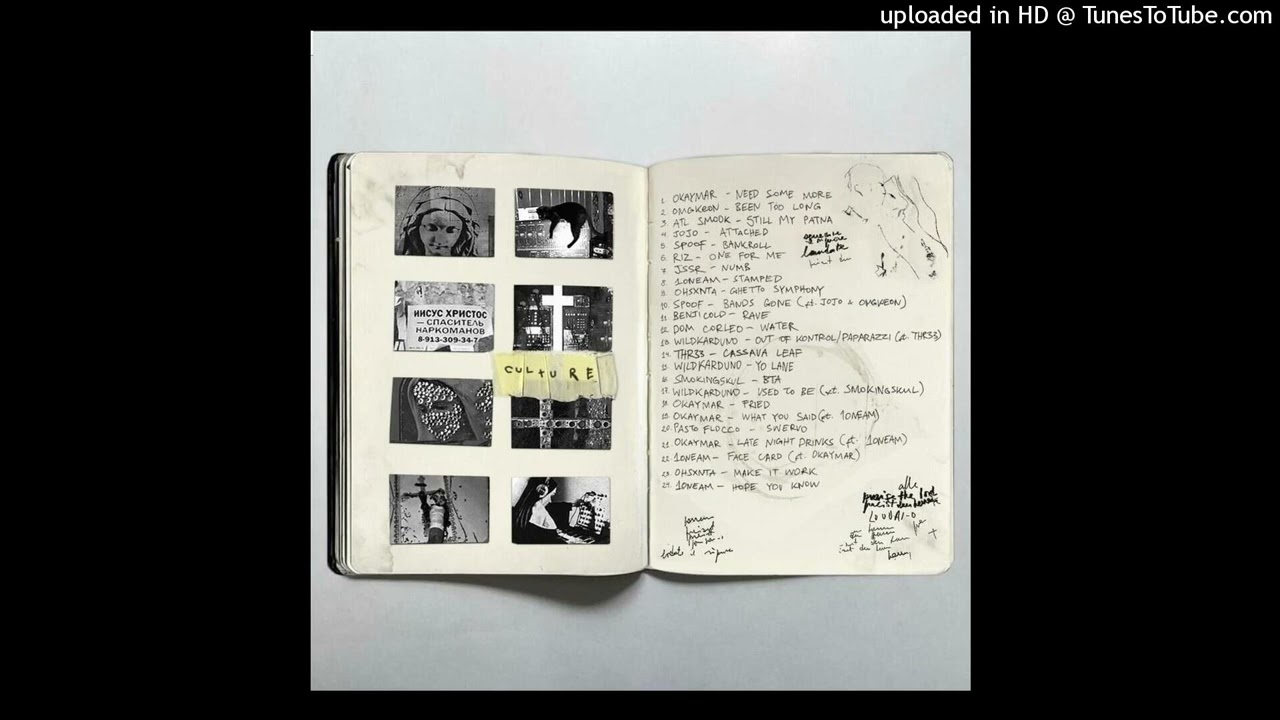 uploaded in HD @ TunesToTube.com
ИИСУС ХРИСТОС
— СПАСИТЕЛЬ
НАРКОМАНОВ
8-913-309-34-7
CULTURE
1. OKAYMAR - NEED SOME MORE
2. OMGKEON - BEEN TOO LONG
3. ATL SMOOK - STILL MY PATNA
4. JOJO - ATTACHED
5. SPOOF - BANKROLL
6. RIZ - ONE FOR ME
7. JSSR - NUMB
8. 1ONEAM - STAMPED
9. OHSXNTA - GHETTO SYMPHONY
10. SPOOF - BANDS GONE (ft. JOJO & OMGKEON)
11. BENJICOLD - RAVE
12. DOM CORLEO - WATER
13. WILDKARDUNO - OUT OF KONTROL/PAPARAZZI (ft. THR33)
14. THR33 - CASSAVA LEAF
15. WILDKARDUNO - YO LANE
16. SMOKINGSKUL - BTA
17. WILDKARDUNO - USED TO BE (ft. SMOKINGSKUL)
18. OKAYMAR - FRIED
19. OKAYMAR - WHAT YOU SAID (ft. 1ONEAM)
20. PASTO FLOCCO - SWERVO
21. OKAYMAR - LATE NIGHT DRINKS (ft. 1ONEAM)
22. 1ONEAM - FACE CARD (ft. OKAYMAR)
23. OHSXNTA - MAKE IT WORK
24. 1ONEAM - HOPE YOU KNOW